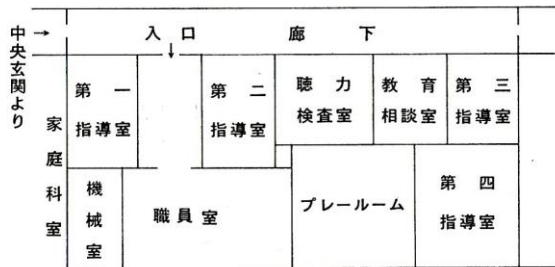 中央玄関より
→
入口
↓
廊下
家庭科室
第一
指導室
第二
指導室
聴力
検査室
教育
相談室
第三
指導室
機械室
職員室
プレールーム
第四
指導室